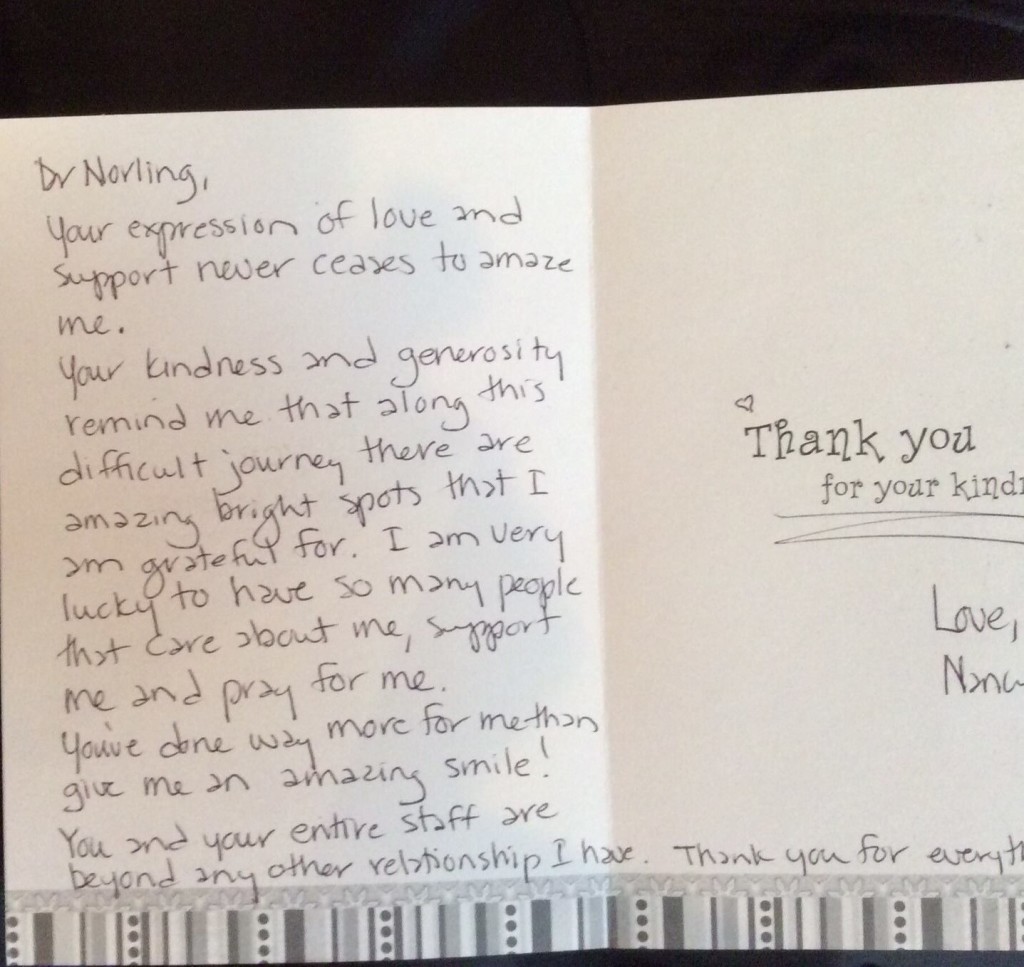 Dr Norling,
Your expression of love and
support never ceases to amaze
me.
Your kindness and generosity
remind me that along this
difficult journey there are
amazing bright spots that I
am grateful for. I am very
lucky to have so many people
that care about me, support
me and pray for me.
You've done way more for me than
give me an amazing smile!
You and your entire staff are
beyond any other relationship I have. Thank you for everyth
Thank you
for your kind
Love,